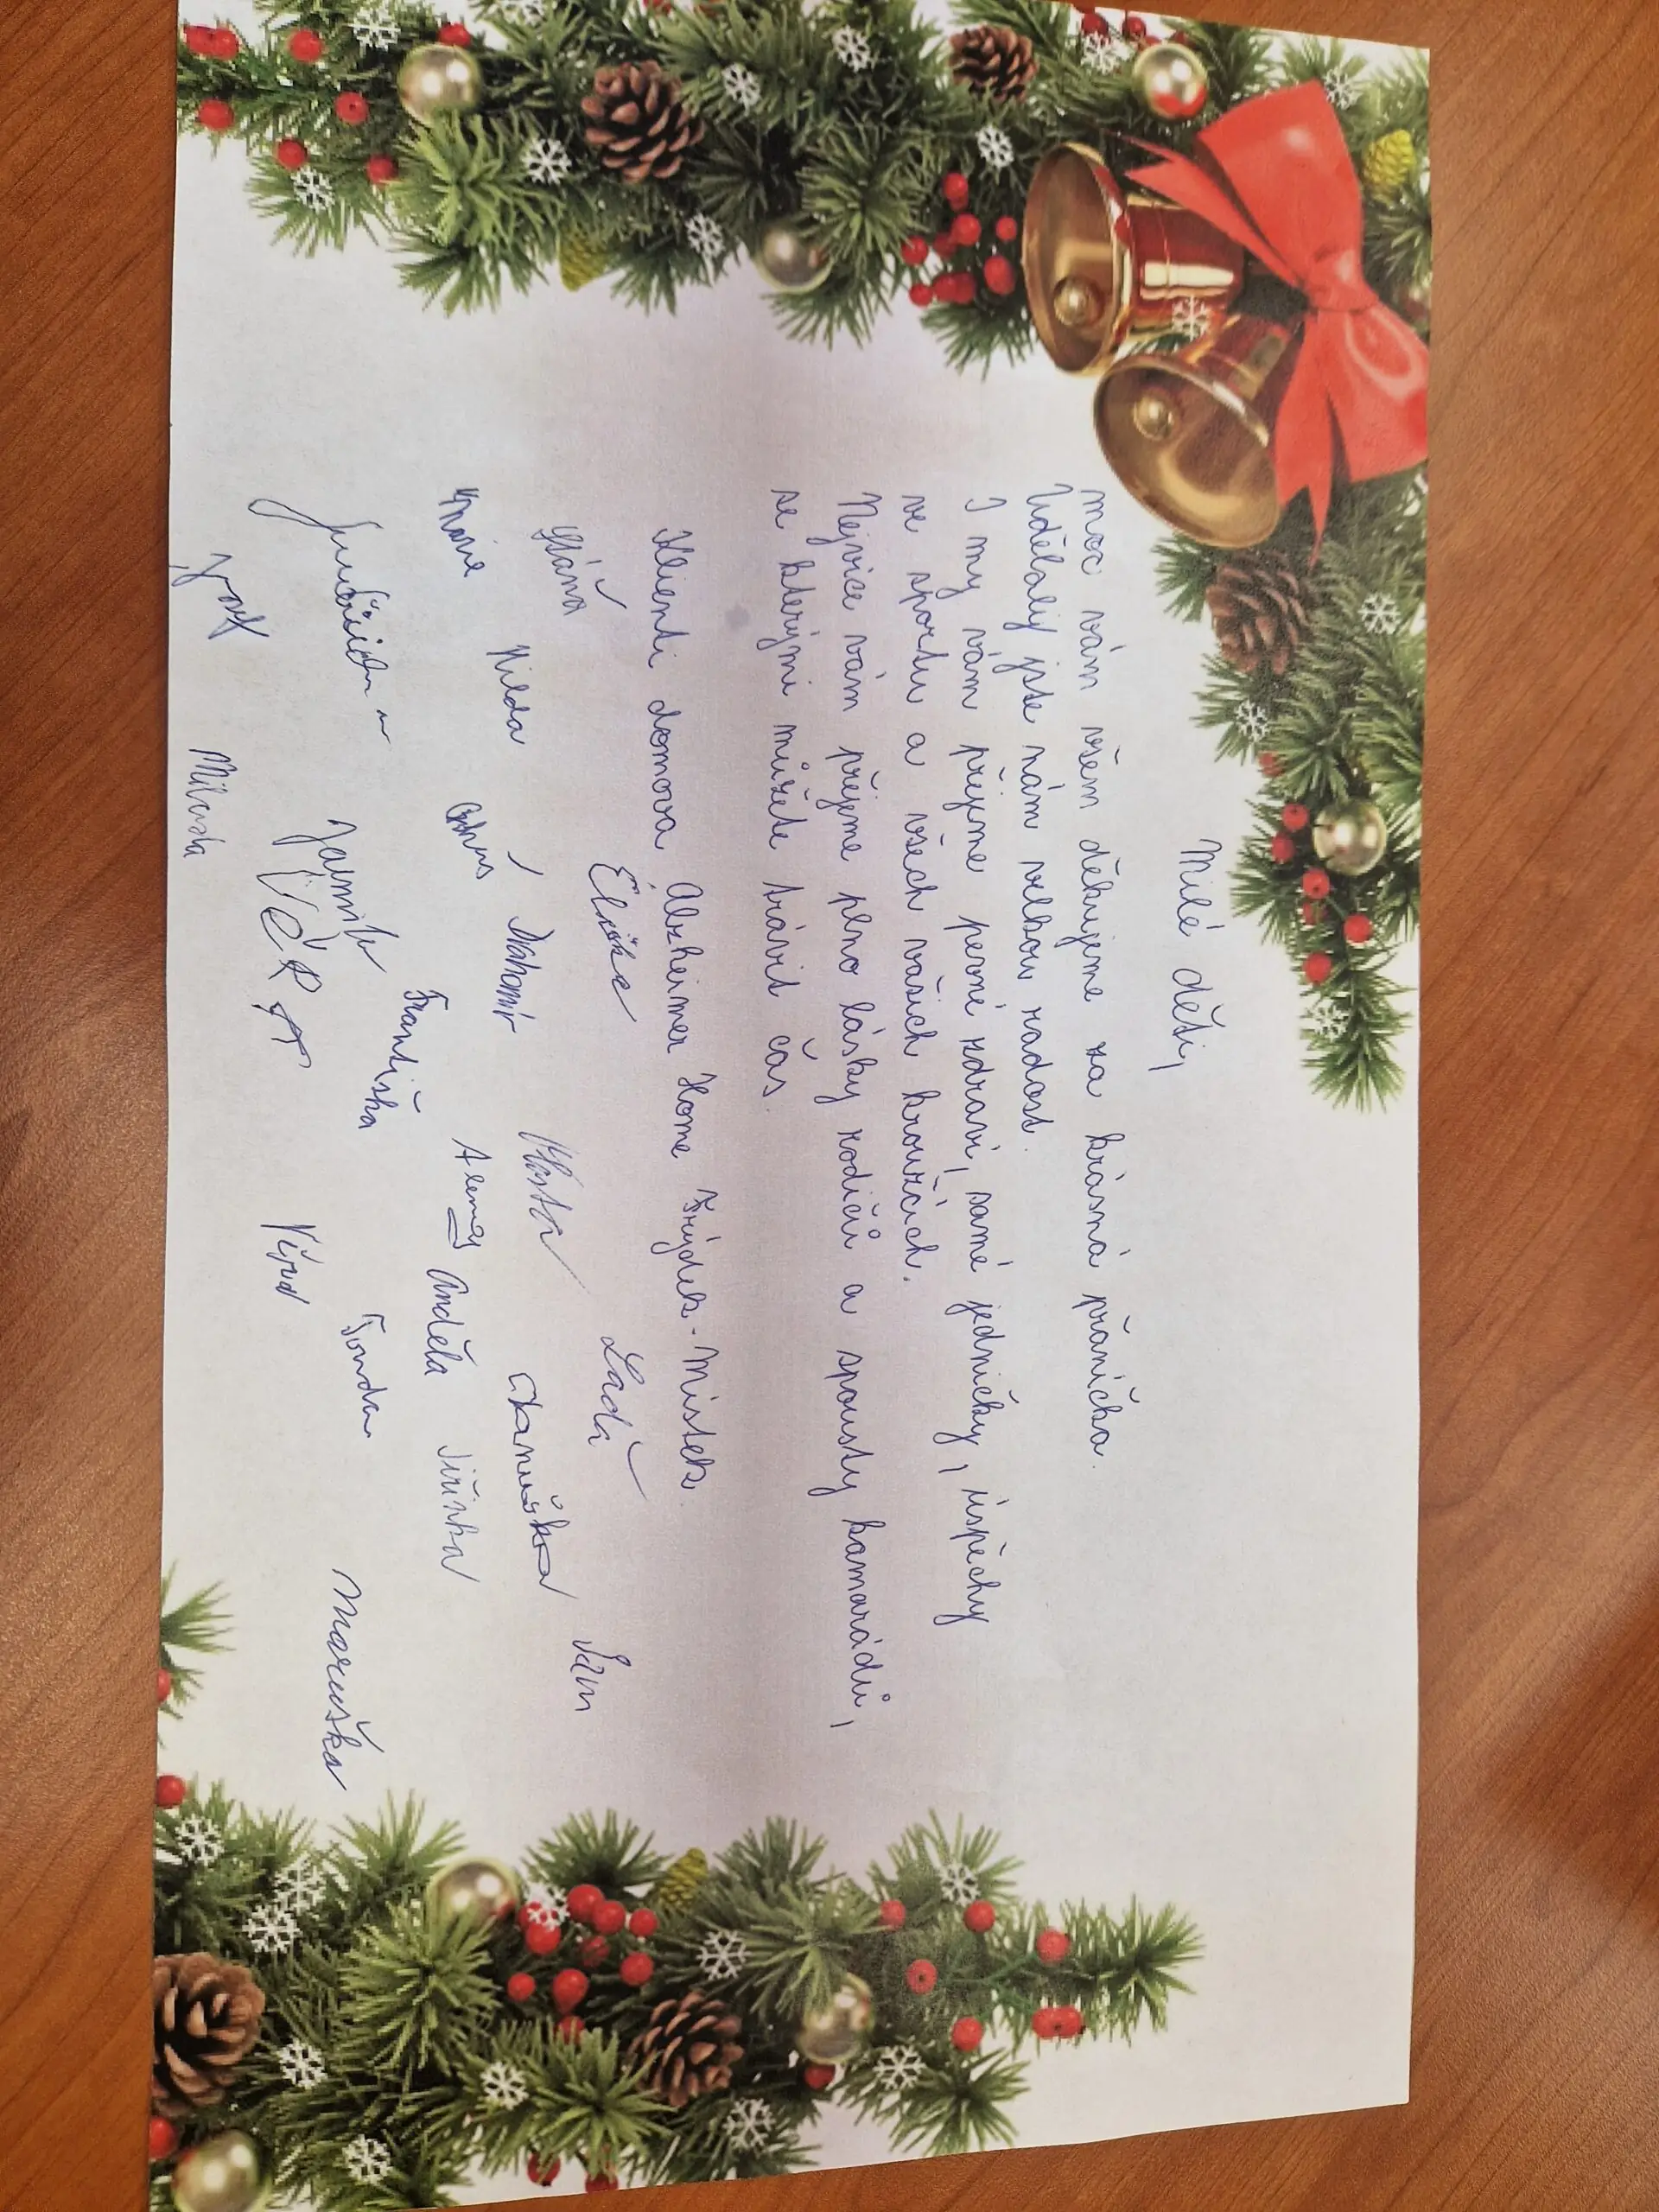 Milé děti,
moc vám všem děkujeme za krásná přáníčka.
Udělaly jste nám velkou radost.
I my vám přejeme pevné zdraví, samé jedničky, úspěchy
ve sportu a všech vašich kroužcích.
Nejvíce vám přejeme plno lásky rodičů a spousty kamarádů,
se kterými můžete trávit čas.
Klienti domova Alzheimer Home Frýdek-Místek.
Eliška Laďa
Hilda Drahomír Vlasta Danuška
Marie Alena Anděla Jiřinka
Jarmila Františka Tonda Maruška
VĚRA Věra
Josef Miluša